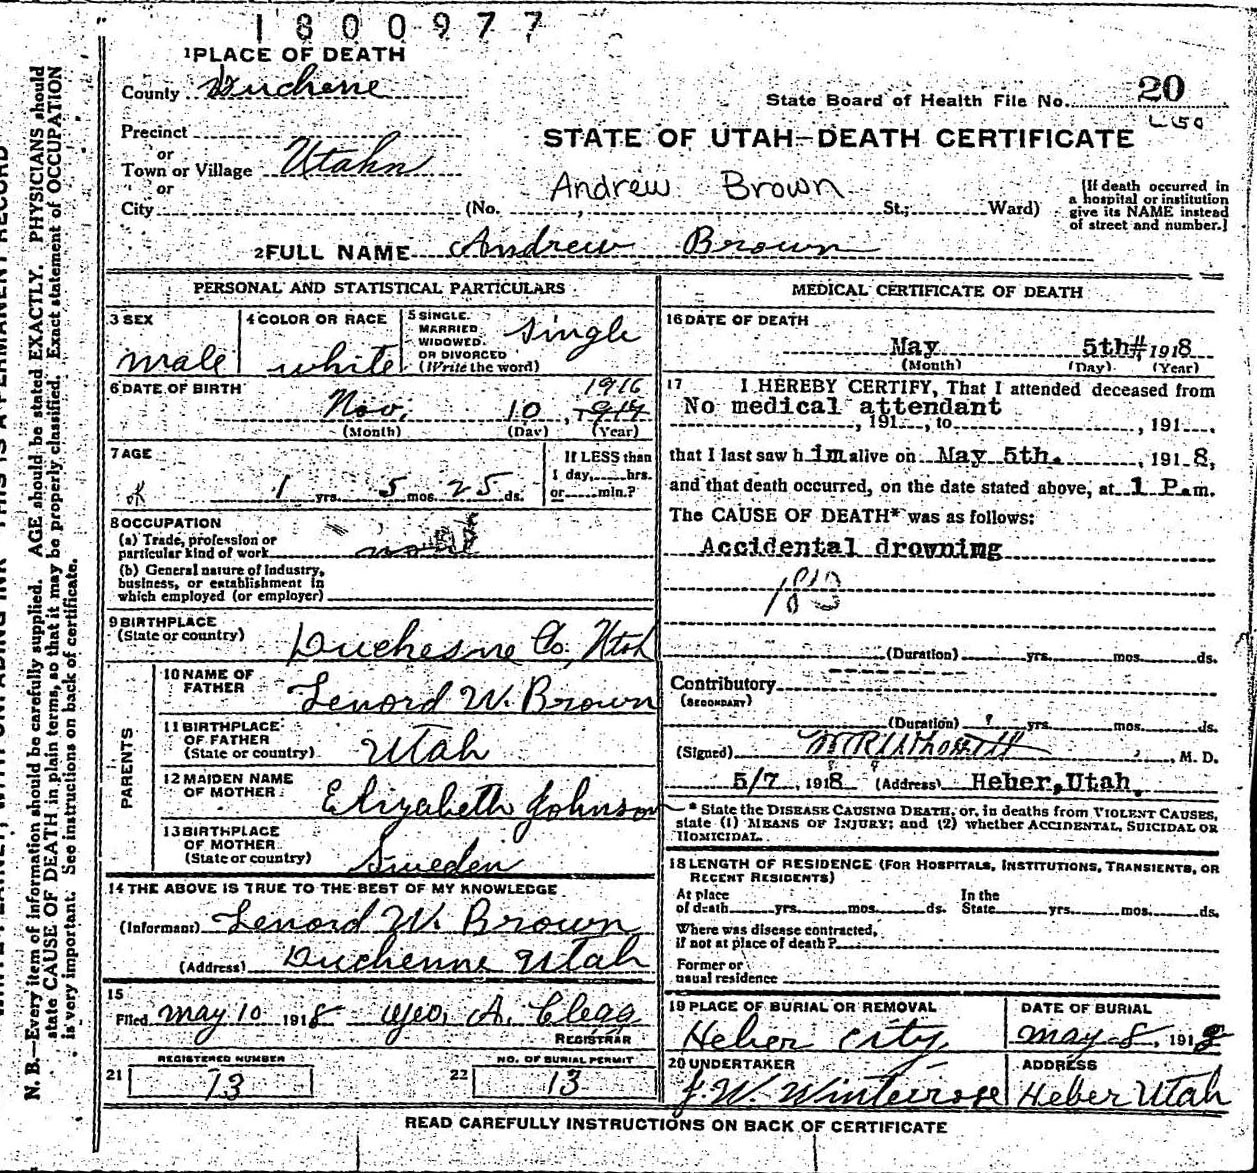 1800977
1 PLACE OF DEATH
County Duchene
State Board of Health File No. 20
L150
Precinct
or
Town or Village Utahn
or
City
STATE OF UTAH—DEATH CERTIFICATE
Andrew Brown
(No. St.; Ward)
[If death occurred in
a hospital or institution
give its NAME instead
of street and number.]
2 FULL NAME Andrew Brown
PERSONAL AND STATISTICAL PARTICULARS
3 SEX
male
4 COLOR OR RACE
white
5 SINGLE.
MARRIED
WIDOWED.
OR DIVORCED
(Write the word)
single
6 DATE OF BIRTH
1916
Nov. 10, 1917
(Month) (Day) (Year)
7 AGE
ok 1 yrs. 5 mos. 25 ds.
If LESS than
1 day, hrs.
or min.?
8 OCCUPATION
(a) Trade, profession or
particular kind of work none
(b) General nature of Industry,
business, or establishment in
which employed (or employer)
9 BIRTHPLACE
(State or country) Duchesne Co., Utah
PARENTS
10 NAME OF
FATHER Lenord W. Brown
11 BIRTHPLACE
OF FATHER
(State or country) Utah
12 MAIDEN NAME
OF MOTHER Elizabeth Johnson
13 BIRTHPLACE
OF MOTHER
(State or country) Sweden
14 THE ABOVE IS TRUE TO THE BEST OF MY KNOWLEDGE
(Informant) Lenord W. Brown
(Address) Duchenne Utah
15
Filed May 10 1918 Geo. A. Clegg
REGISTRAR
REGISTERED NUMBER
21 13
NO. OF BURIAL PERMIT
22 13
MEDICAL CERTIFICATE OF DEATH
16 DATE OF DEATH
May 5th 1918
(Month) (Day) (Year)
17 I HEREBY CERTIFY, That I attended deceased from
No medical attendant
, 191 , to , 191 ,
that I last saw him alive on May 5th. , 1918,
and that death occurred, on the date stated above, at 1 P.m.
The CAUSE OF DEATH* was as follows:
Accidental drowning
183
(Duration) yrs. mos. ds.
Contributory
(SECONDARY)
(Duration) yrs. mos. ds.
(Signed) , M. D.
5/7 , 1918 (Address) Heber, Utah.
* State the DISEASE CAUSING DEATH, or, in deaths from VIOLENT CAUSES,
state (1) MEANS OF INJURY; and (2) whether ACCIDENTAL, SUICIDAL OR
HOMICIDAL.
18 LENGTH OF RESIDENCE (FOR HOSPITALS, INSTITUTIONS, TRANSIENTS, OR
RECENT RESIDENTS)
At place
of death yrs. mos. ds.
In the
State yrs. mos. ds.
Where was disease contracted,
if not at place of death?
Former or
usual residence
19 PLACE OF BURIAL OR REMOVAL
Heber City
DATE OF BURIAL
May 8, 1918
20 UNDERTAKER
J. W. Winterose
ADDRESS
Heber Utah
READ CAREFULLY INSTRUCTIONS ON BACK OF CERTIFICATE
N. B.—Every item of information should be carefully supplied. AGE should be stated EXACTLY. PHYSICIANS should
state CAUSE OF DEATH in plain terms, so that it may be properly classified. Exact statement of OCCUPATION
is very important. See instructions on back of certificate.